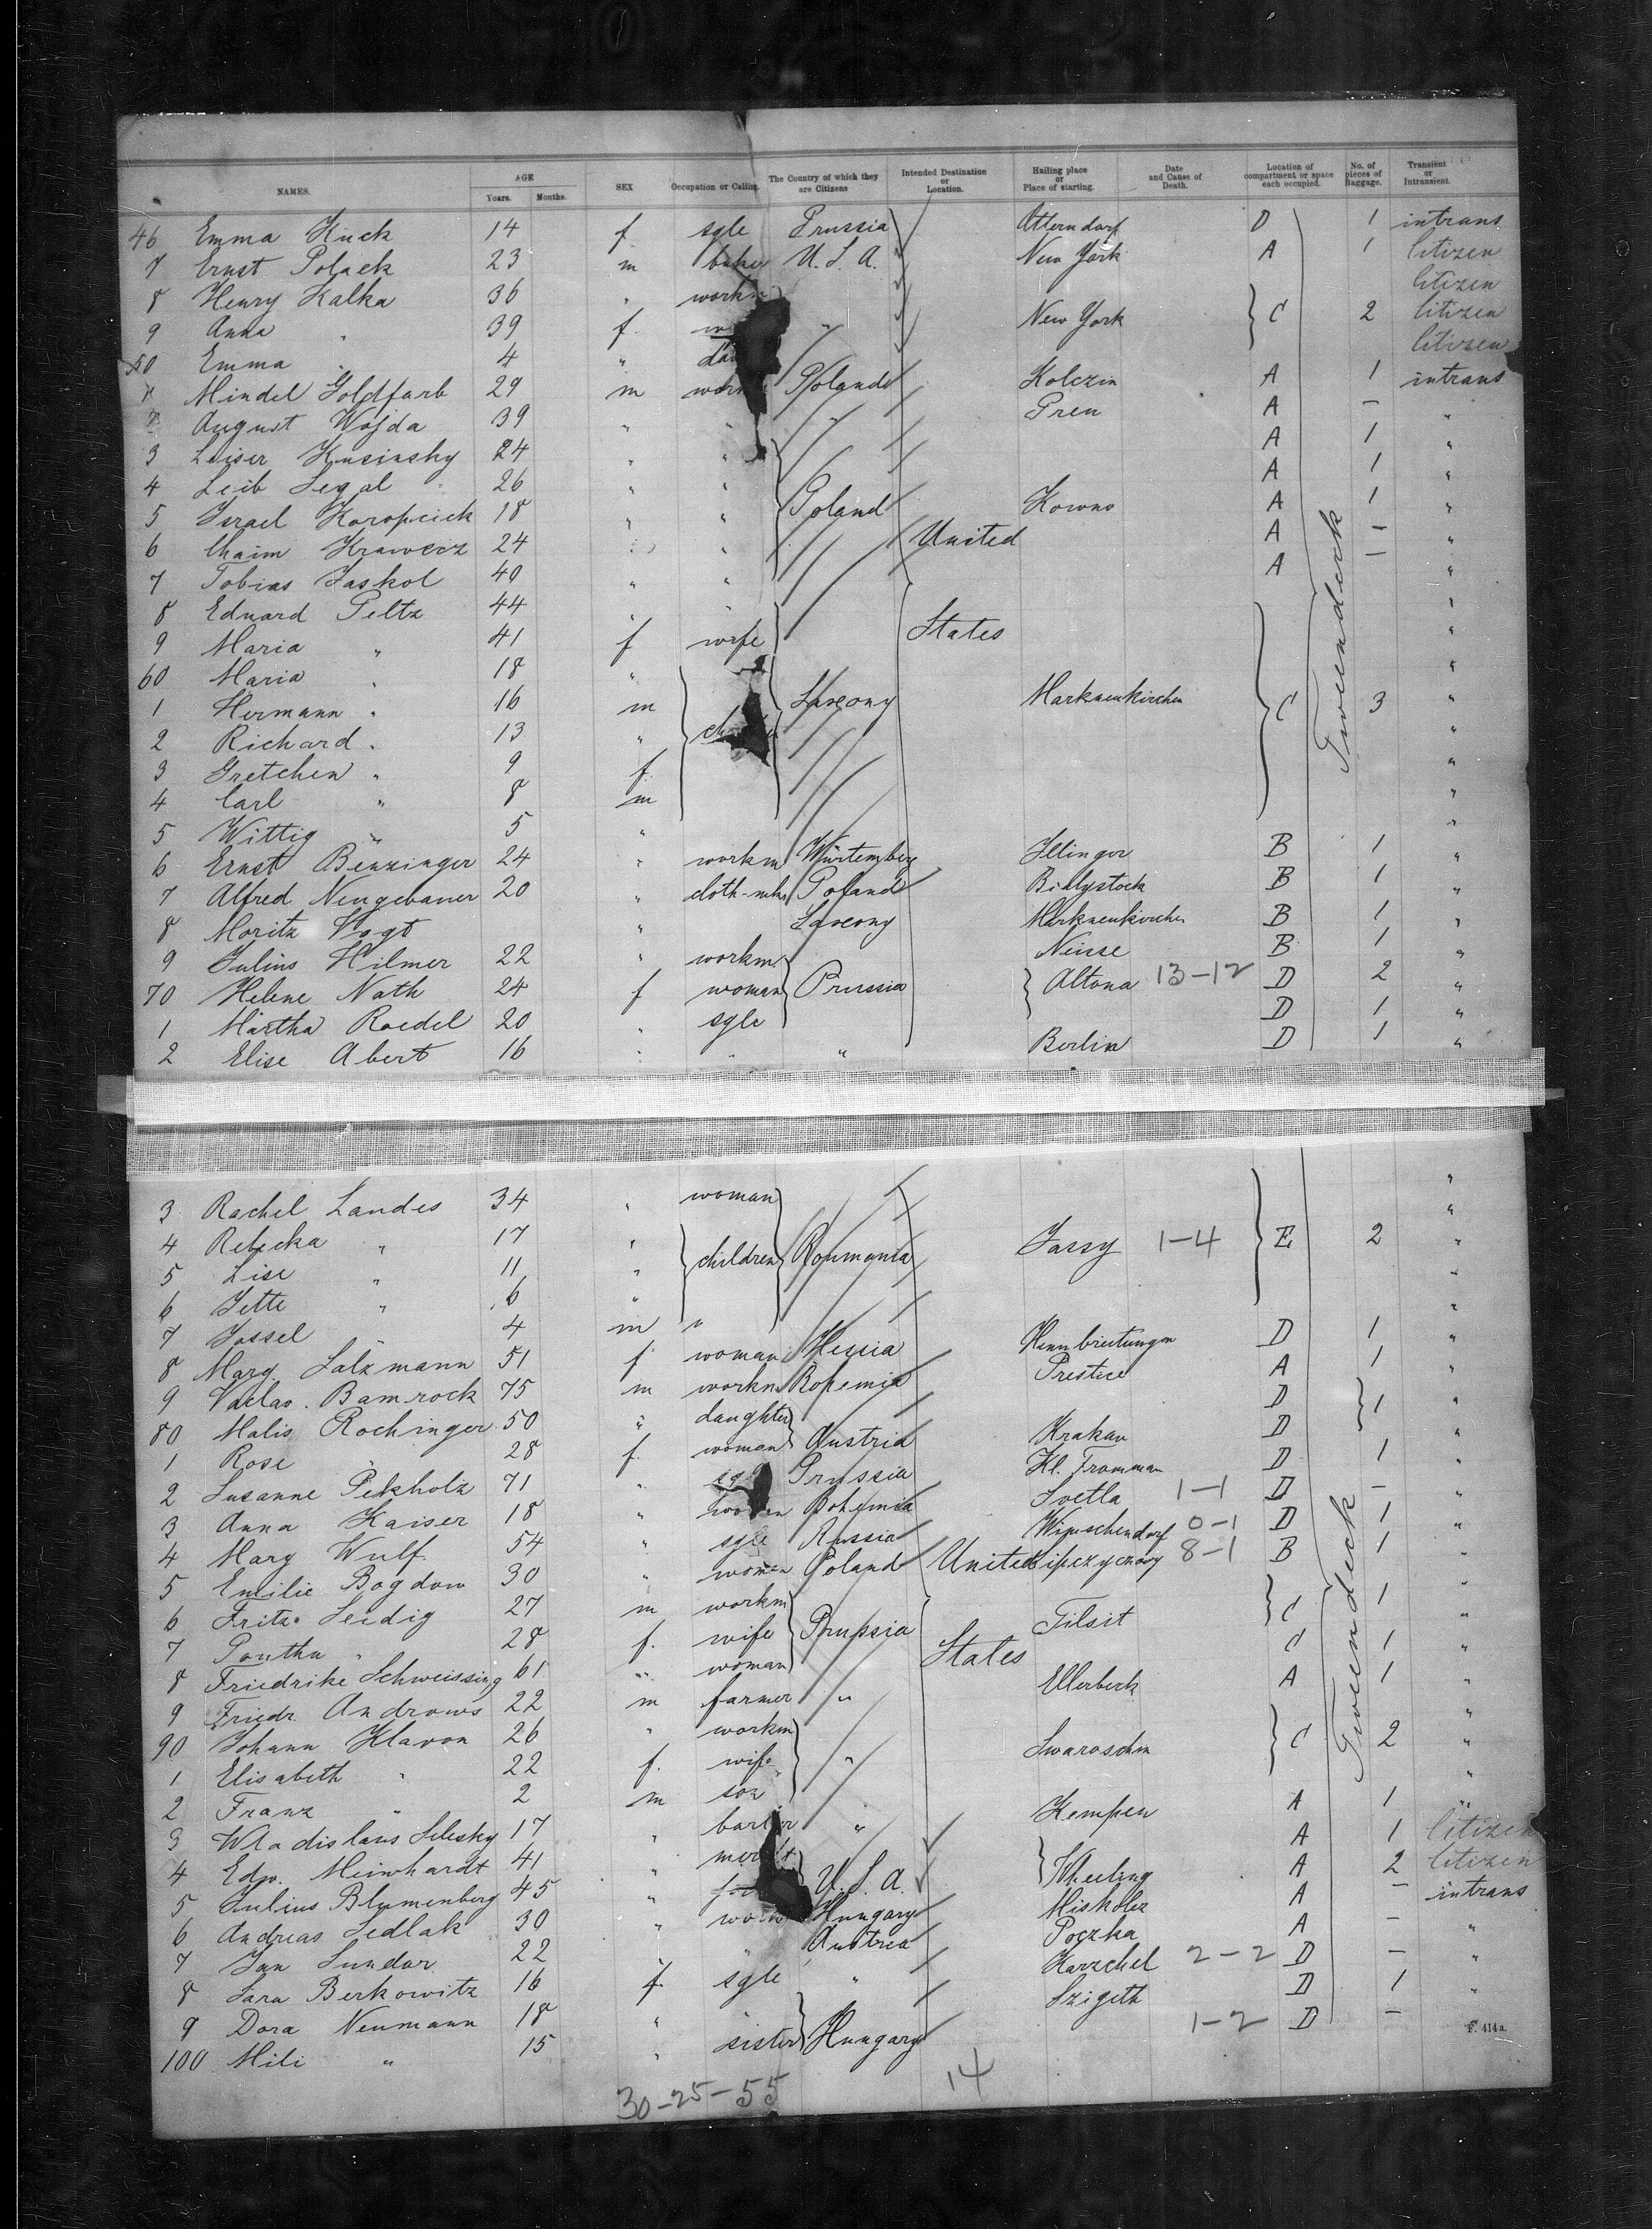 NAMES. AGE Years. Months. SEX Occupation or Calling. The Country of which they are Citizens Intended Destination or Location. Hailing place or Place of starting. Date and Cause of Death. Location of compartment or space each occupied. No. of pieces of Baggage. Transient or Intransient.
46 Emma Huck 14 f sgle Prussia Otterndorf D 1 intrans
7 Ernst Polack 23 m baker U. S. A. New York A 1 Citizen
8 Henry Kalka 36 " workm Citizen
9 Anna " 39 f " New York C 2 Citizen
50 Emma " 4 " Citizen
1 Mindel Goldfarb 29 m Poland Kolczin A 1 intrans
2 August Wojda 39 " " " Pren A – "
3 Leiser Kusinsky 24 " " A 1 "
4 Leib Segal 26 " " A 1 "
5 Israel Koropcick 18 " " Poland Kowno A 1 "
6 Chaim Krawecz 24 " " United A – "
7 Tobias Jaskol 40 " " A – "
8 Eduard Peltz 44 " " "
9 Maria " 41 f wife States "
60 Maria " 18 " "
1 Hermann " 16 m Saxony Marknenkirchen C 3 "
2 Richard " 13 " "
3 Gretchen " 9 f "
4 Carl " 8 m "
5 Wittig " 5 " "
6 Ernst Benzinger 24 " workm Würtemberg Illinger B 1 "
7 Alfred Neugebauer 20 " cloth-mk Poland Bialystock B 1 "
8 Moritz Vogt " Saxony Marknenkirchen B 1 "
9 Julius Hilmer 22 " workm Neisse B 1 "
70 Helene Nath 24 f woman Prussia Altona 13-12 D 2 "
1 Martha Roedel 20 " sgle D 1 "
2 Elise Abert 16 " " " Berlin D 1 "
Zwischendeck
3 Rachel Landes 34 " woman "
4 Rebecka " 17 " Roumania Jassy 1-4 E 2 "
5 Lise " 11 " children "
6 Jette " 6 " "
7 Jossel " 4 m " "
8 Marg. Salzmann 51 f woman Hessia D 1 "
9 Vaclav. Bamrock 75 m workm Bohemia Prestice A 1 "
80 Malis Rochinger 50 " daughter D 1 "
1 Rose " 28 f. woman Austria Krakau D "
2 Susanne Pekholz 71 " Prussia Kl. Tromman D 1 "
3 Anna Kaiser 18 " woman Bohemia Svetla 1-1 D – "
4 Marg Wulf 54 " sgle Russia Wipschendorf 0-1 D 1 "
5 Emilie Bogdow 30 " woman Poland United Lipczyczany 8-1 B 1 "
6 Fritz Seidig 27 m workm Prussia Tilsit C 1 "
7 " 28 f. wife States C 1 "
8 Friedrike Schweissing 61 " woman A 1 "
9 Friedr. Androws 22 m farmer " Ellerbeck "
90 Johann Klavon 26 " workm Swaroschin C 2 "
1 Elisabeth " 22 f. wife " "
2 Franz " 2 m son "
3 Wladislaus Selesky 17 " barber " Kempen A 1 "
4 Edw. Meinhardt 41 " U. S. A. Wheeling A 1 Citizen
5 Julius Blumenberg 45 " A 2 Citizen
6 Andreas Sedlak 30 " Hungary Miskolcz A – intrans
7 Jan Sundar 22 " " Austria Poczka A – "
8 Sara Berkowitz 16 f. sgle " Karzchel 2-2 D – "
9 Dora Neumann 18 " Hungary Szigeth D 1 "
100 Mili " 15 " sister 1-2 D – "
Zwischendeck
F. 414a.
30-25-55 14